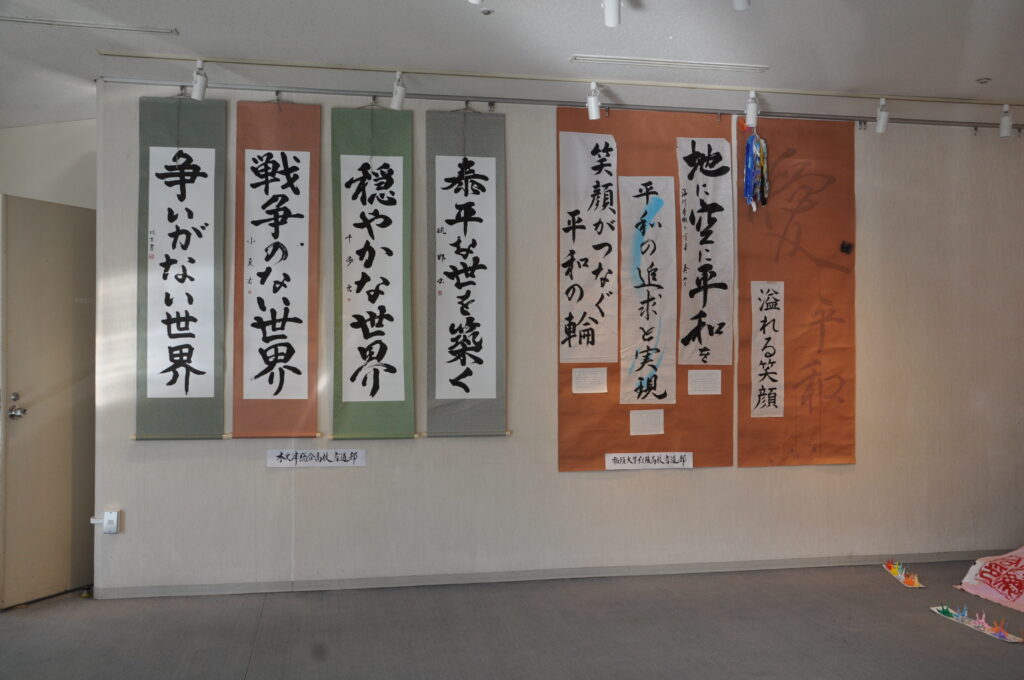 争いがない世界
戦争のない世界
穏やかな世界
泰平な世を築く
木更津総合高校書道部
地に空に平和を
平和の追求と実現
笑顔がつなぐ
平和の輪
愛
平和
溢れる笑顔